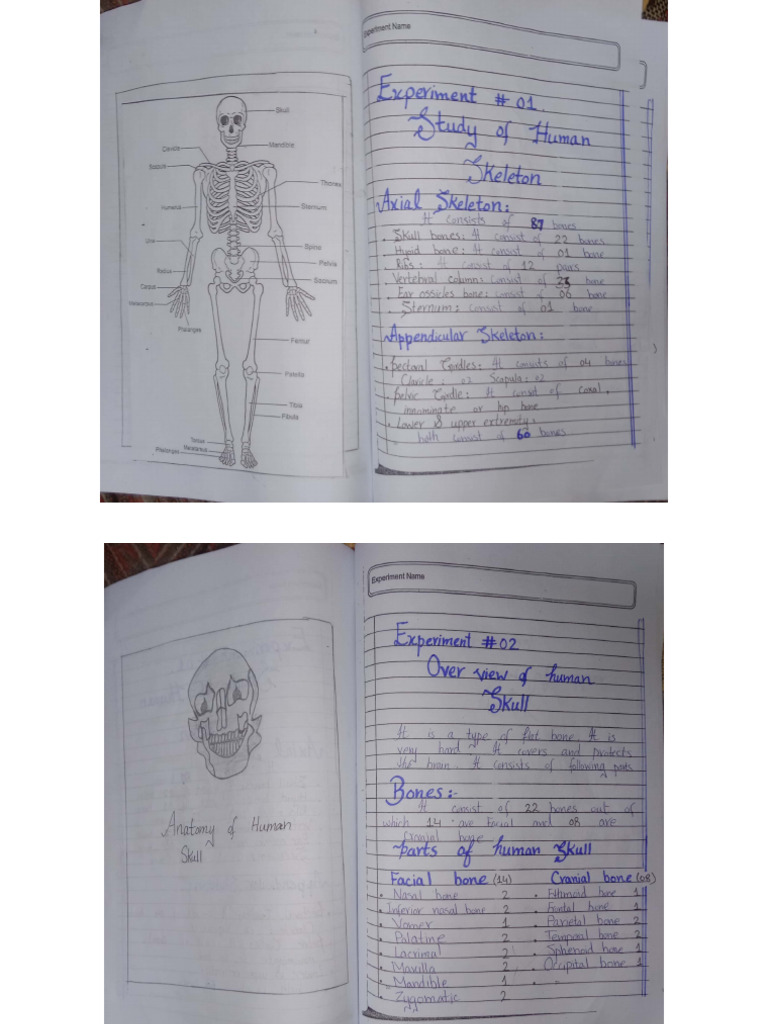 Experiment Name
Skull
Mandible
Clavicle
Scapula
Thorax
Humerus
Sternum
Ulna
Spine
Pelvis
Radius
Sacrum
Carpus
Metacarpus
Phalanges
Femur
Patella
Tibia
Fibula
Tarsus
Metatarsus
Phalanges
Experiment # 01.
Study of Human
Skeleton
Axial Skeleton:
It consists of 87 bones
. Skull bones: It consist of 22 bones
. Hyoid bone: It consist of 01 bone
. Ribs: It consist of 12 pairs
. Vertebral column: consist of 25 bone
. Ear ossicles bone: consist of 06 bone
. Sternum: consist of 01 bone
Appendicular Skeleton:
. Pectoral Girdles: It consists of 04 bones
Clavicle: 02 Scapula: 02
. Pelvic Girdle: It consist of coxal,
innominate or hip bone
. Lower & upper extremity:
both consist of 60 bones
Experiment Name
Anatomy of Human
Skull
Experiment #02
Over view of human
Skull
It is a type of flat bone. It is
very hard. It covers and protects
the brain. It consists of following parts
Bones:-
It consist of 22 bones out of
which 14 are facial and 08 are
cranial bone
parts of human Skull
Facial bone (14) Cranial bone (08)
. Nasal bone 2 . Ethmoid bone 1
. Inferior nasal bone 2 . Frontal bone 1
. Vomer 1 . Parietal bone 2
. Palatine 2 . Temporal bone 2
. Lacrimal 2 . Sphenoid bone 1
. Maxilla 2 . Occipital bone 1
. Mandible 1
. Zygomatic 2